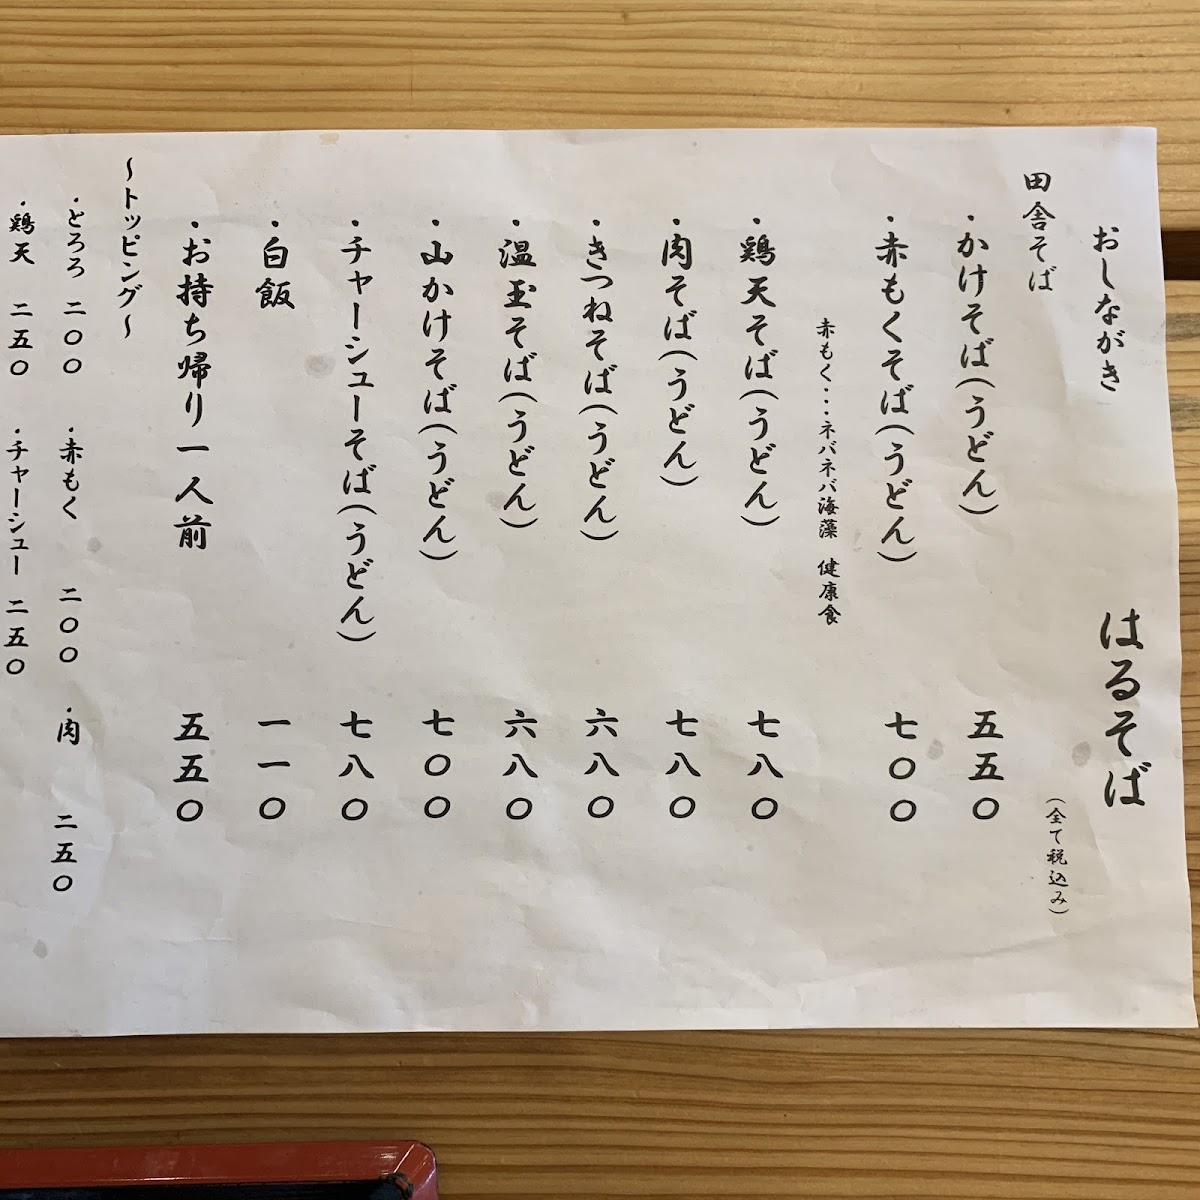 おしながき はるそば
田舎そば (全て税込み)
・かけそば(うどん) 五五〇
・赤もくそば(うどん) 七〇〇
赤もく・・・ネバネバ海藻 健康食
・鶏天そば(うどん) 七八〇
・肉そば(うどん) 七八〇
・きつねそば(うどん) 六八〇
・温玉そば(うどん) 六八〇
・山かけそば(うどん) 七〇〇
・チャーシューそば(うどん) 七八〇
・白飯 一一〇
・お持ち帰り一人前 五五〇
～トッピング～
・とろろ 二〇〇 ・赤もく 二〇〇 ・肉 二五〇
・鶏天 二五〇 ・チャーシュー 二五〇